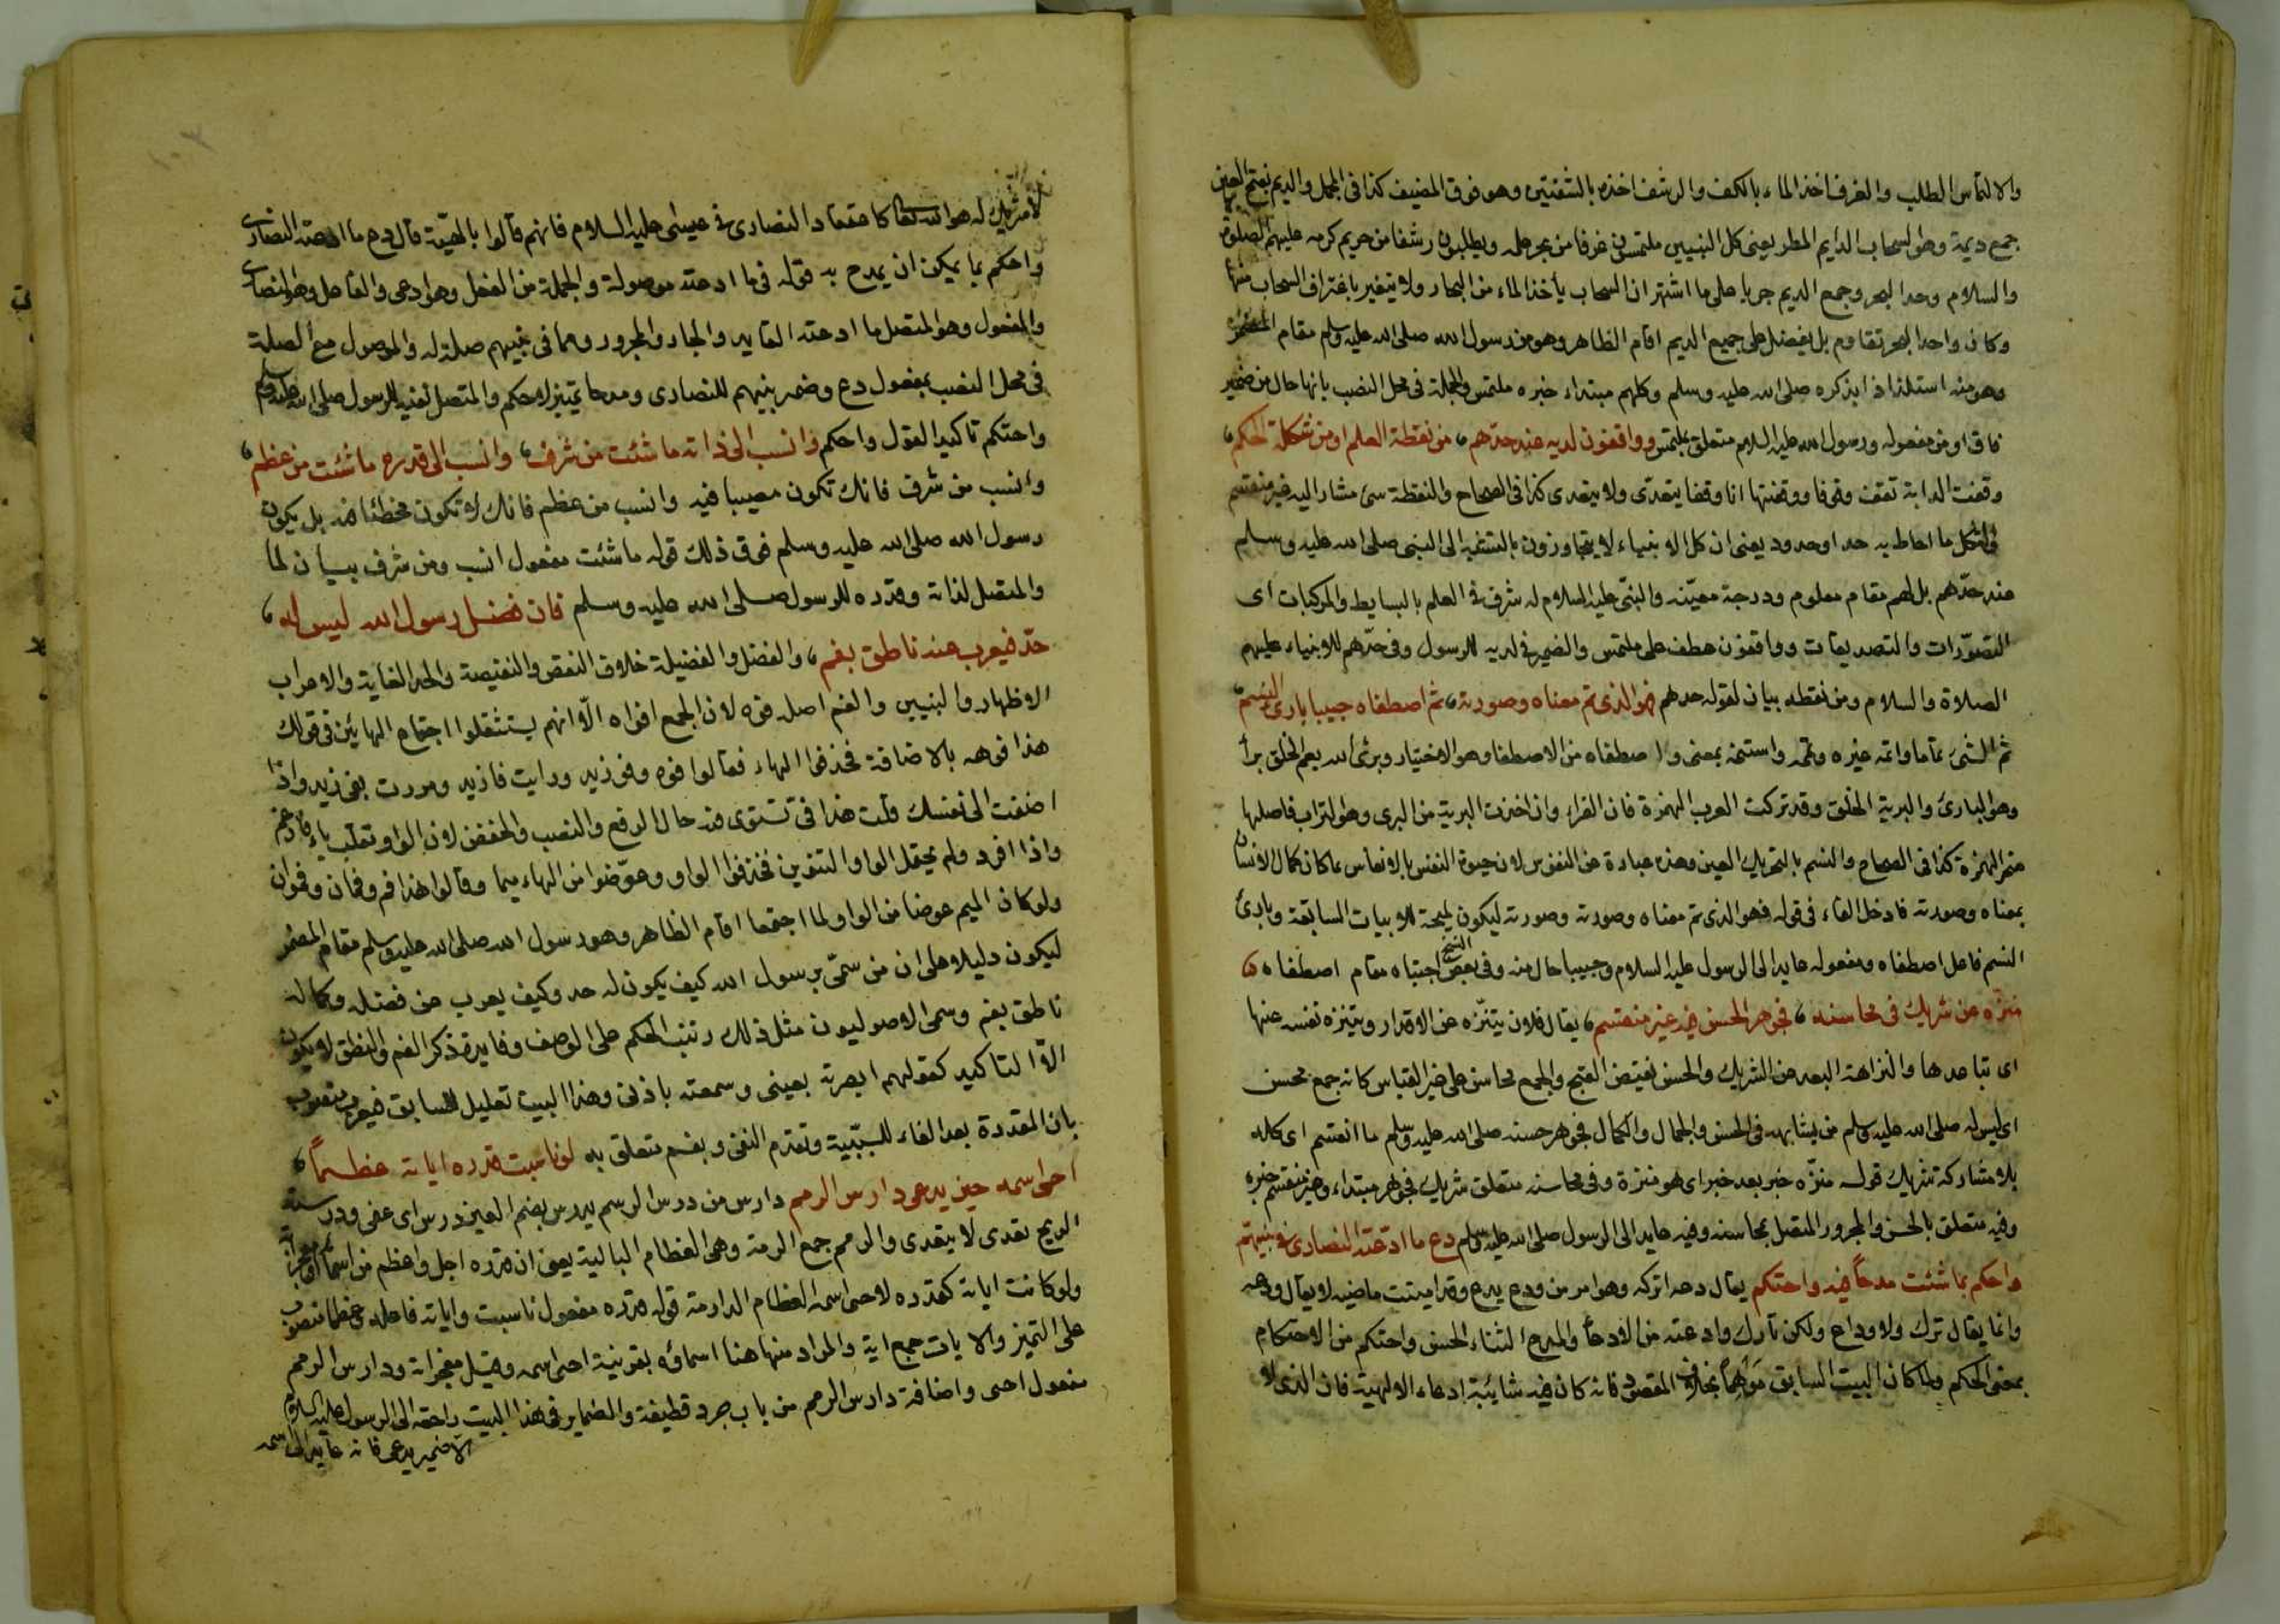 والالتماس الطلب والغرف اخذ الماء بالكف والرشف اخذه بالشفتين وهو فوق المضيف كذا فى المجمل والديم بفتح العين
جمع ديمة وهو السحاب الدايم المطر يعنى كل النبيين ملتمسون غرفا من بحر علمه ويطلبون رشفا من ديم كرمه عليهم الصلوة
والسلام وحدا البحر وجمع الديم جريا على ما اشتهر ان السحاب يأخذ الماء من البحار ولا يتغير باغتراف السحاب منها
وكان واحد البحر تقاوم بل يفضل على جميع الديم اقام الظاهر وهو من رسول الله صلى الله عليه وسلم مقام المضمر
وهو منه استلذاذا بذكره صلى الله عليه وسلم وكلهم مبتداء خبره ملتمس والجملة فى محل النصب بانها حال من ضمير
فاق او من مفعوله ورسول الله عليه السلام متعلق بملتمس وواقفون لديه عند حدهم، من نقطة العلم او من شكلة الحكم،
وقفت الدابة تقف وقوفا ووقفتها انا وقفا يتعدى ولا يتعدى كذا فى الصحاح والنقطة شئ مشار اليه غير منقسم
والشكل ما احاط به حد او حدود يعنى ان كل الانبياء لا يتجاوزون بالنسبة الى النبى صلى الله عليه وسلم
عند حدهم بل لهم مقام معلوم ودرجة معينة والنبى عليه السلام له شرف فى العلم بالبسايط والمركبات اى
التصورات والتصديقات وواقفون عطف على ملتمس والضمير فى لديه للرسول وفى حدهم للانبياء عليهم
الصلاة والسلام ومن نقطة بيان لقوله حدهم فهو الذى تم معناه وصورته، ثم اصطفاه حبيبا بارئ النسم،
تم الشئ تماما واتمه غيره وتممه واستتمه بمعنى واصطفاه من الاصطفا وهو الاختيار وبرئ الله يعم الخلق برأ
وهو البارئ والبرية الخلق وقد تركت العرب الهمزة فان الفراء وان اخذت البرية من البرى وهو التراب فاصلها
غير الهمزة كذا فى الصحاح والنسم بالتحريك العين وهذه عبارة عن النفوس لان حيوة النفس بالانفاس بما كان كمال الانسان
بمعناه وصورته فادخل الفاء فى قوله فهو الذى تم معناه وصورته وصورته ليكون نتيجة للابيات السابقة وبارئ
النسم فاعل اصطفاه ومفعوله عايد الى الرسول عليه السلام وحبيبا حال منه وفى بعض النسخ اجتباه مقام اصطفاه
منزه عن شريك فى محاسنه، فجوهر الحسن فيه غير منقسم، يقال فلان يتنزه عن الاقدار ويتنزه نفسه عنها
اى تباعدها والنزاهة البعد عن الشريك والحسن نقيض القبح والجمع محاسن على غير القياس كانه جمع محسن
اى ليس له صلى الله عليه وسلم من يشابهه فى الحسن والجمال والكمال فجوهر حسنه صلى الله عليه وسلم ما انقسم اى كله
بلا مشاركة شريك قوله منزه خبر بعد خبر اى هو منزه وفى محاسنه متعلق شريك فجوهر مبتداء وغير منقسم خبره
وفيه متعلق بالحسن والمجرور المتصل بمحاسنه وفيه عايد الى الرسول صلى الله عليه وسلم دع ما ادعته النصارى فى نبيهم
واحكم بما شئت مدحا فيه واحتكم يقال دعه اتركه وهو امر من ودع يدع وقد اميتت ماضيه لا يقال ودعه
وانما يقال ترك ولا وداع ولكن تارك وادعته من الادعاء والمدح الثناء الحسن واحتكم من الاحتكام
بمعنى الحكم ولما كان البيت السابق موهما بخلاف المقصود فانه كان فيه شائبة ادعاء الالهية فان الذى لا
لا شريك له هو الله تعالى كاعتقاد النصارى فى عيسى عليه السلام فانهم قالوا بالهيته قال دع ما ادعته النصارى
واحكم بما يمكن ان يمدح به قوله فى ما ادعته موصولة والجملة من الفعل وهو ادعى والفاعل وهو النصارى
والمفعول وهو المتصل ما ادعته العايد والجار والمجرور وهما فى نبيهم صلة له والموصول مع الصلة
فى محل النصب بمفعول دع وضمير بنيهم للنصارى ومدحا تمييز لاحكم والمتصل لفيه للرسول صلى الله عليه وسلم
واحتكم تاكيد القول واحكم وانسب الى ذاته ما شئت من شرف، وانسب الى قدره ما شئت من عظم،
وانسب من شرف فانك تكون مصيبا فيه وانسب من عظم فانك لا تكون مخطئا فيه بل يكون
رسول الله صلى الله عليه وسلم فوق ذلك قوله ما شئت مفعول انسب ومن شرف بيان لما
والمتصل لذاته وقدره للرسول صلى الله عليه وسلم فان فضل رسول الله ليس له،
حد فيعرب عنه ناطق بفم، والفضل والفضيلة خلاف النقص والنقيصة والحد الغاية والاعراب
الاظهار والتبيين والفم اصله فوه لان الجمع افواه الا انهم يستثقلوا اجتماع الهائين فى قولك
هذا فوهه بالاضافة فحذفوا الهاء فقالوا فوه وفو زيد ورايت فا زيد ومررت بفى زيد واذا
اضفت الى نفسك قلت هذا فى تستوى فيه حال الرفع والنصب والخفض لان الواو تقلب ياء فادغم
واذا افرد ولم يحتمل الواو التنوين فحذفوا الواو وعوضوا من الهاء ميما وقالوا هذا فم وفمان وفموان
ولو كان الميم عوضا من الواو لما اجتمعا اقام الظاهر وهو رسول الله صلى الله عليه وسلم مقام المضمر
ليكون دليلا على ان من سمى برسول الله كيف يكون له حد وكيف يعرب عن فضله وكماله
ناطق بفم وسمى الاصوليون مثل ذلك رتبت الحكم على الوصف وفايدة ذكر الفم والنطق لا يكون
الا التاكيد كقولهم ابصرته بعينى وسمعته باذنى وهذا البيت تعليل للسابق فيعرب منصوب
بان المقدرة بعد الفاء للسببية وتقدم النفى وبفم متعلق به لو ناسبت قدره اياته عظما،
احى اسمه حين يدعى دارس الرمم دارس من درس الرسم يدرس بضم العين درس اى عفى ودرسته
الريح تعدى لا يتعدى والرمم جمع الرمة وهى العظام البالية يعنى ان قدره اجل واعظم من اسمائه ومعجزاته
ولو كانت اياته كقدره لاحى اسمه العظام الدارسة قوله قدره مفعول ناسبت واياته فاعله وعظما منصوب
على التمييز والايات جمع اية والمراد منها هنا اسماؤه بقرينة احى اسمه وقيل معجزاته ودارس الرمم
مفعول احى واضافة دارس الرمم من باب جرد قطيفة والضماير فى هذا البيت راجعة الى الرسول عليه السلام
الا ضمير يدعى فانه عايد الى اسمه